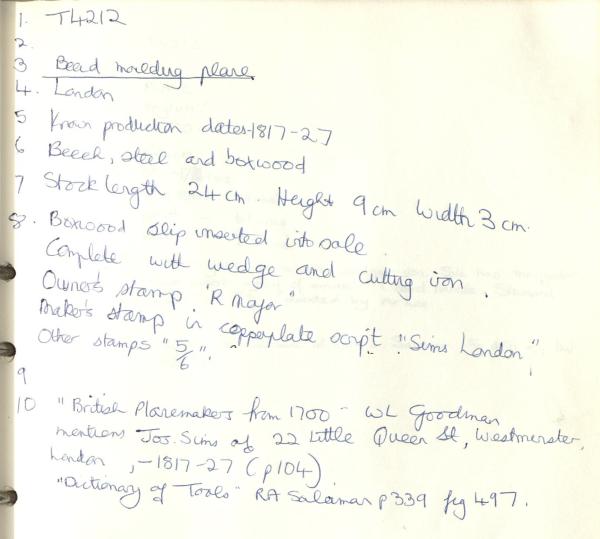 1. T4212
2.
3 Bead moulding plane
4. London
5 Known production dates-1817-27
6 Beech, steel and boxwood
7 Stock length 24cm. Height 9cm Width 3cm.
8. Boxwood slip inserted into sole
Complete with wedge and cutting iron.
Owner's stamp "R Major"
Maker's stamp in copperplate script "Sims London",
Other stamps "5/6".
9
10 "British Planemakers from 1700 - WL Goodman
mentions Jos. Sims of 22 Little Queen St, Westminster,
London, -1817-27 (p104)
"Dictionary of Tools" RA Salaman p339 fig 497.